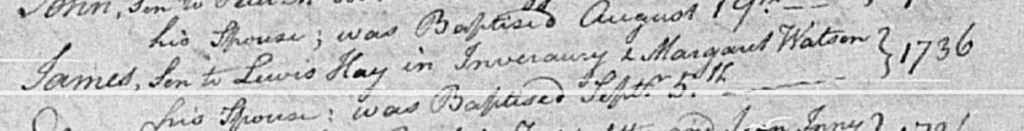 John, Son to
his Spouse; was Baptised August 19th
James, Son to Lewis Hay in Inveraury & Margaret Watson } 1736
his Spouse: was Baptised Septr. 5th
and Jean Inny } 1736